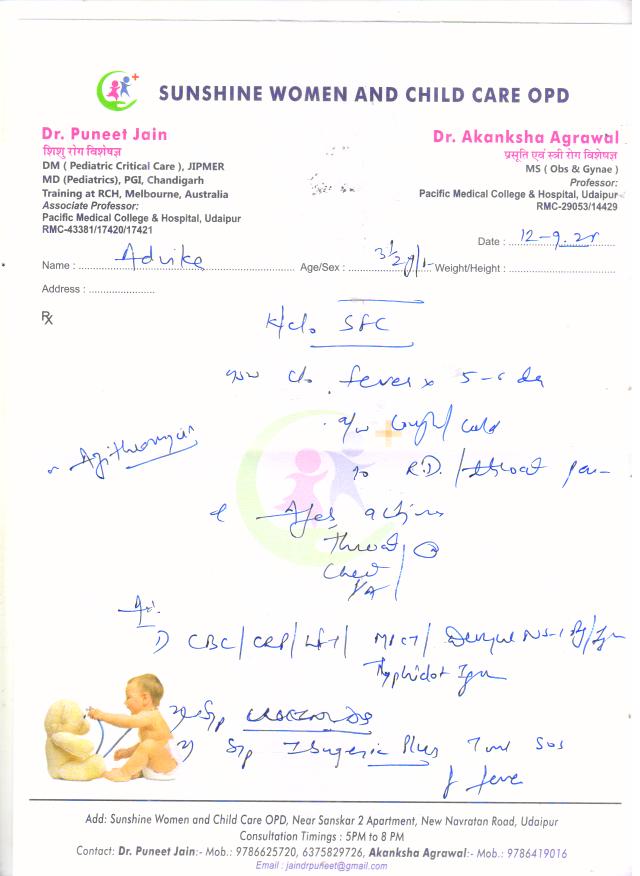 SUNSHINE WOMEN AND CHILD CARE OPD
Dr. Puneet Jain
शिशु रोग विशेषज्ञ
DM ( Pediatric Critical Care ), JIPMER
MD (Pediatrics), PGI, Chandigarh
Training at RCH, Melbourne, Australia
Associate Professor:
Pacific Medical College & Hospital, Udaipur
RMC-43381/17420/17421
Dr. Akanksha Agrawal
प्रसूति एवं स्त्री रोग विशेषज्ञ
MS ( Obs & Gynae )
Professor:
Pacific Medical College & Hospital, Udaipur
RMC-29053/14429
Date : 12-9-25
Name : Advike Age/Sex : 3½ y/ Weight/Height :
Address :
℞
K/c/o SFC
c/o fever x 5-6 da
a/w cough/cold
Azithromycin
no R.D. / throat pain
Afeb, active
Throat
Chest
P/A
Adv.
1) CBC/CRP/LFT/ MPCT/ Dengue NS-1 Ag/Igm
Typhidot Igm
Syp
Syp Ibugesic Plus 7 ml SOS
if fever
Add: Sunshine Women and Child Care OPD, Near Sanskar 2 Apartment, New Navratan Road, Udaipur
Consultation Timings : 5PM to 8 PM
Contact: Dr. Puneet Jain:- Mob.: 9786625720, 6375829726, Akanksha Agrawal:- Mob.: 9786419016
Email : jaindrpuneet@gmail.com